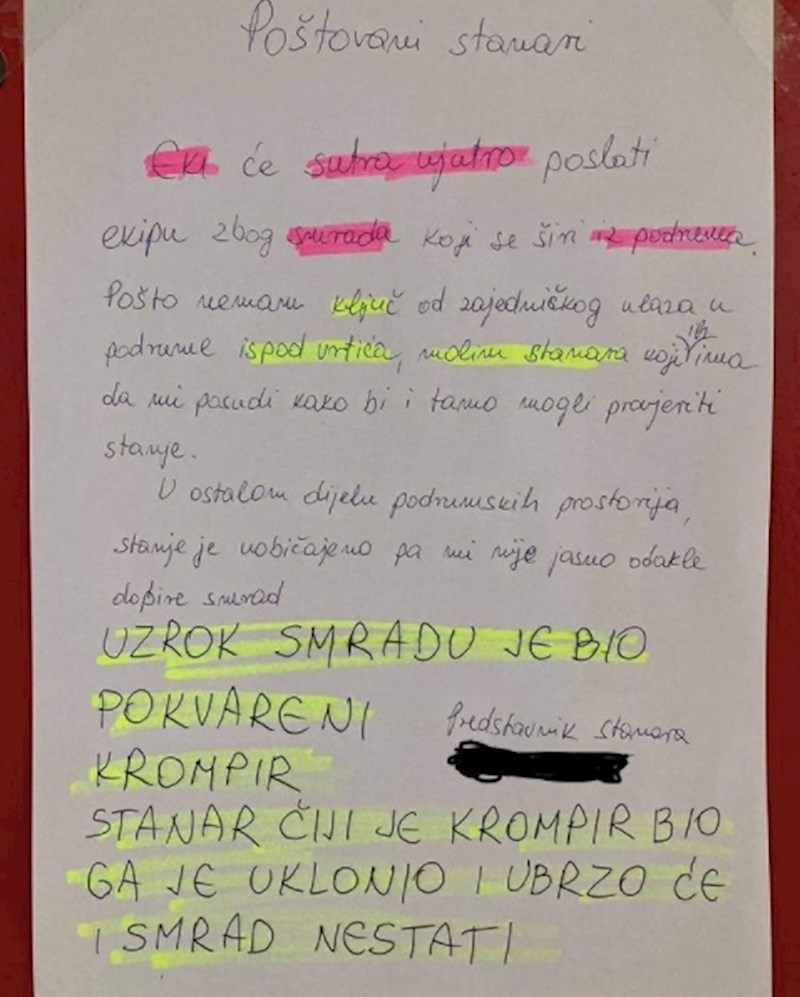 Poštovani stanari
Eki će sutra ujutro poslati
ekipu zbog smrada koji se širi iz podruma.
Pošto nemam ključ od zajedničkog ulaza u
podrume ispod vrtića, molim stanara koji ih ima
da mi posudi kako bi i tamo mogli provjeriti
stanje.
U ostalom dijelu podrumskih prostorija,
stanje je uobičajeno pa mi nije jasno odakle
dopire smrad
UZROK SMRADU JE BIO
POKVARENI
Predstavnik stanara
KROMPIR
STANAR ČIJI JE KROMPIR BIO
GA JE UKLONIO I UBRZO ĆE
I SMRAD NESTATI